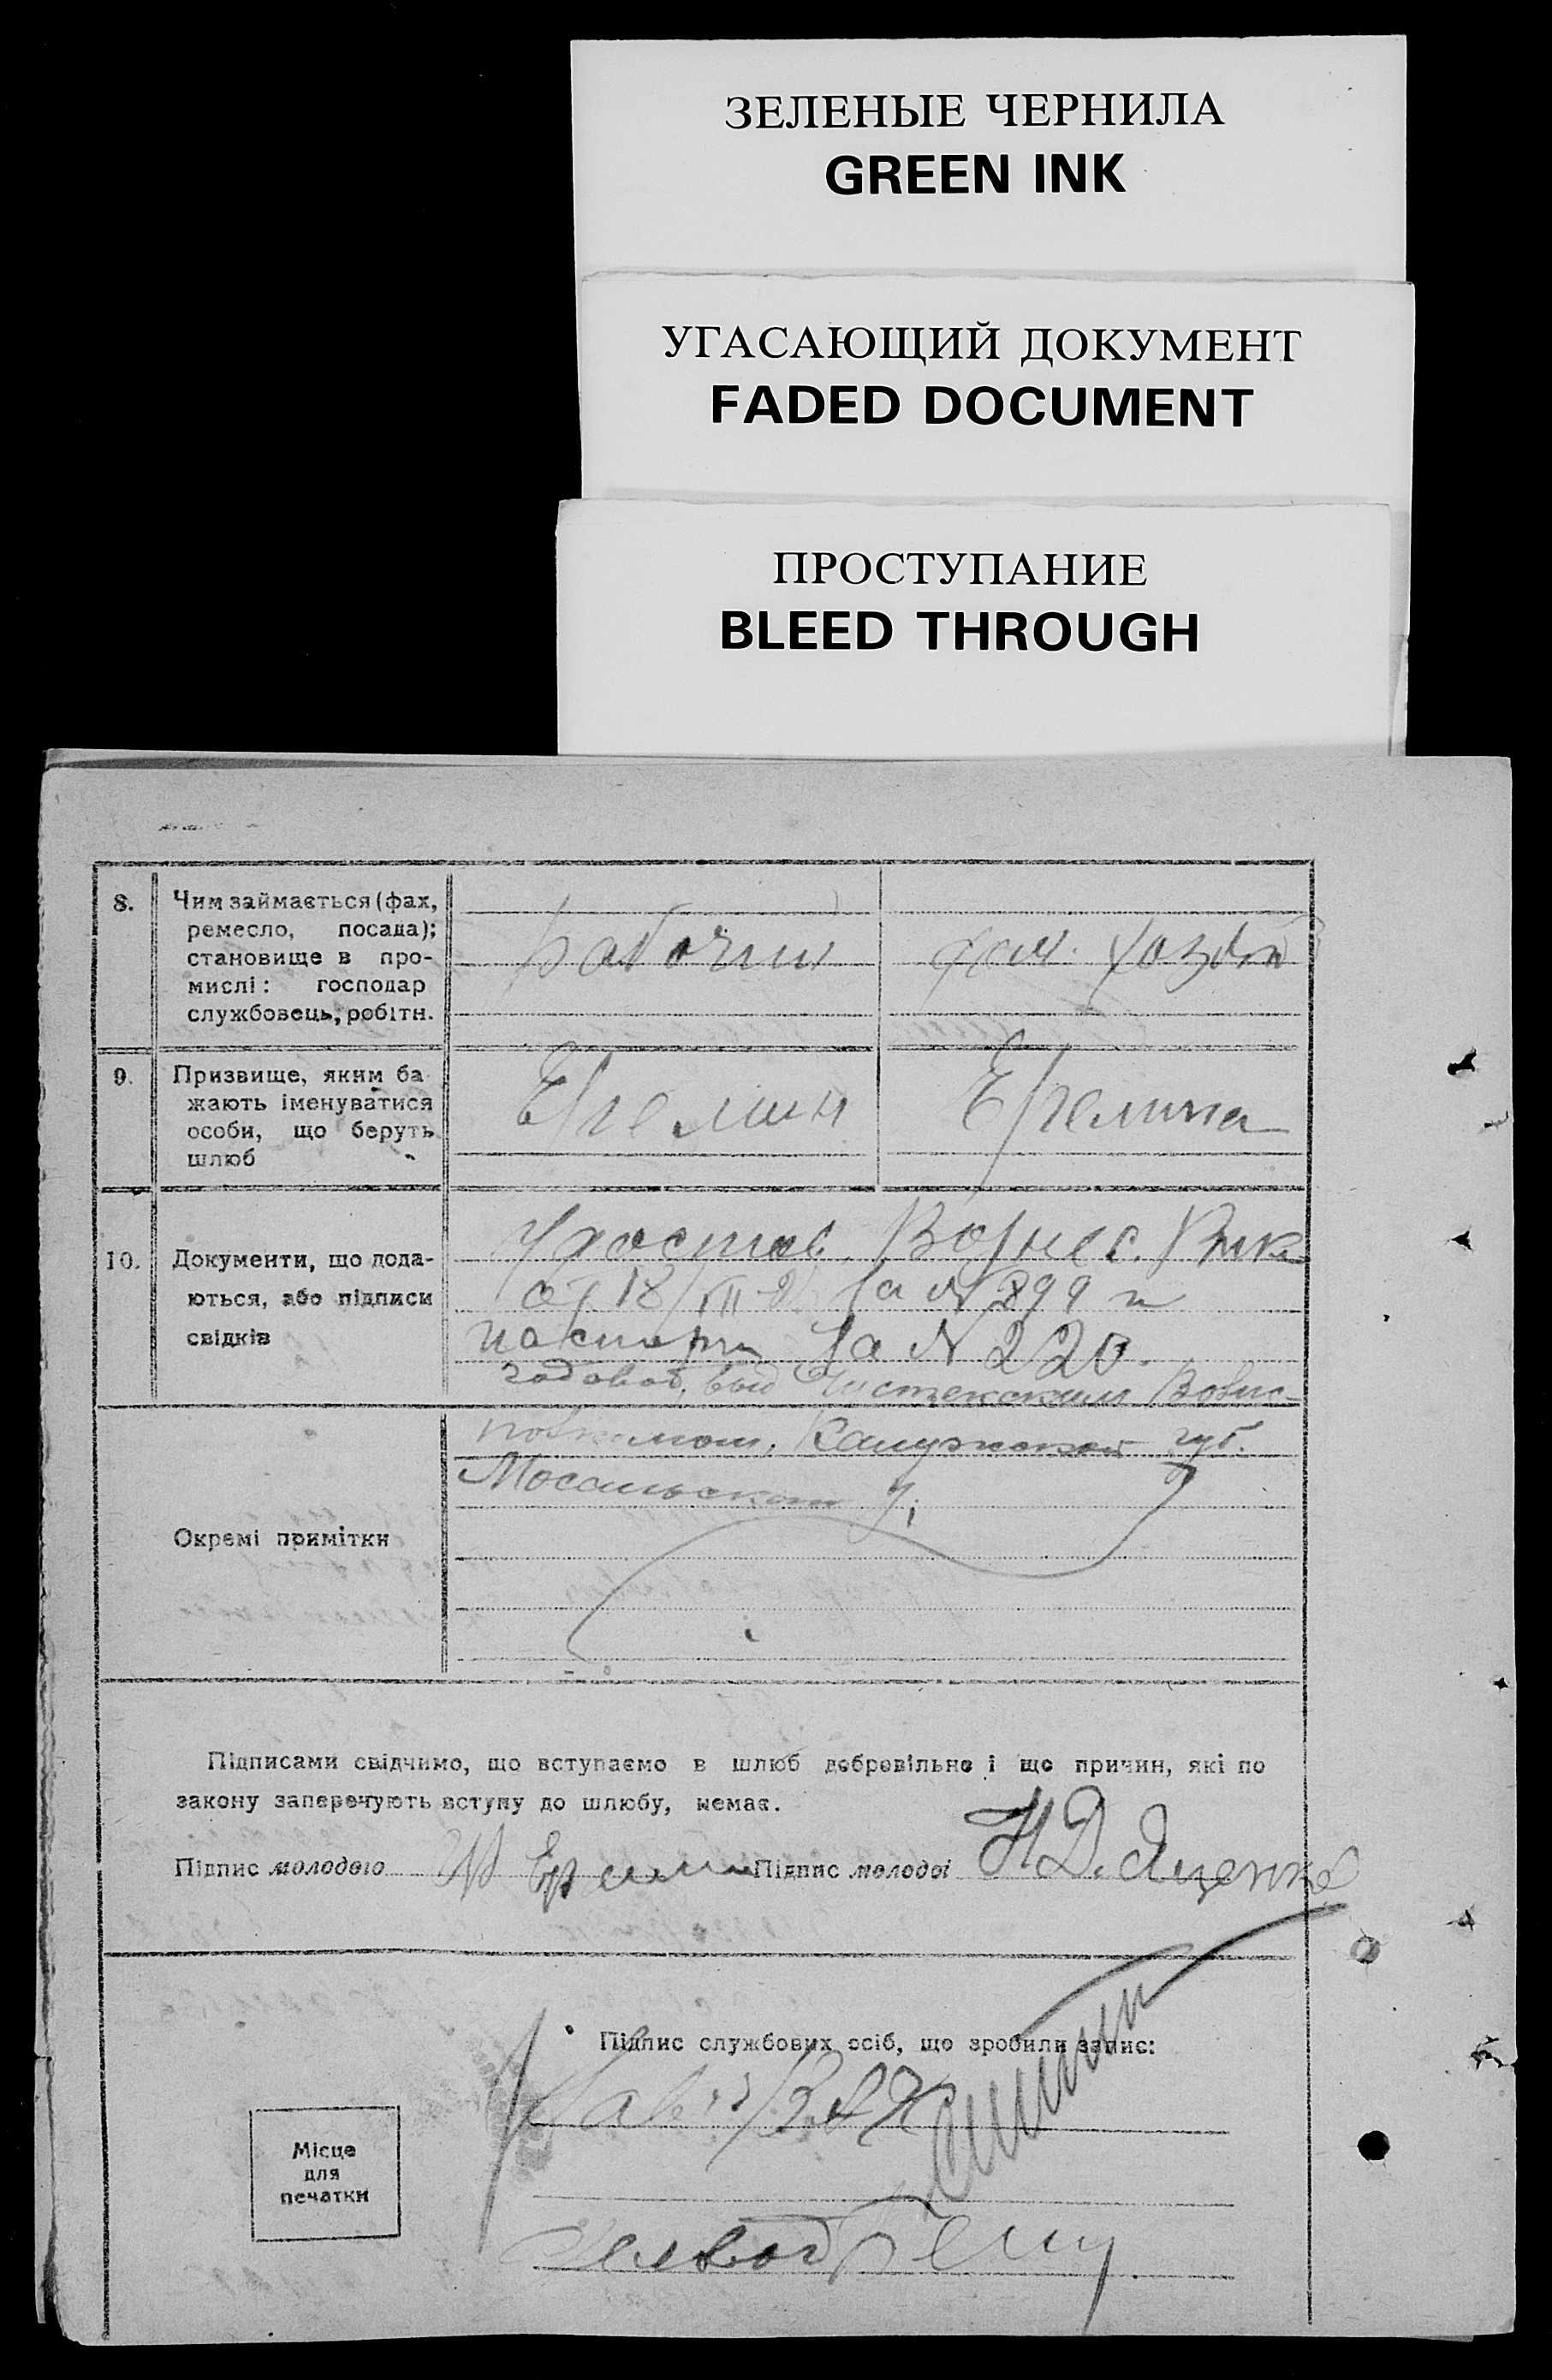 ЗЕЛЕНЫЕ ЧЕРНИЛА
GREEN INK
УГАСАЮЩИЙ ДОКУМЕНТ
FADED DOCUMENT
ПРОСТУПАНИЕ
BLEED THROUGH
8. Чим займається (фах,
ремесло, посада);
становище в про-
мислі: господар
службовець, робітн.
рабочий
дом. хозяй
9. Призвище, яким ба
жають іменуватися
особи, що беруть
шлюб
Еремин
Еремина
10. Документи, що дода-
ються, або підписи
свідків
от 18/VII за № 899 и
паспорт за № 220.
годовой, выд
Калужской губ.
Мосальского у.
Окремі примітки
Підписами свідчимо, що вступаємо в шлюб добровільно і що причин, які по
закону заперечують вступу до шлюбу, немає.
Підпис молодого Еремин Підпис молодої Н Д. Яценко
Підпис службових осіб, що зробили запис:
Місце
для
печатки